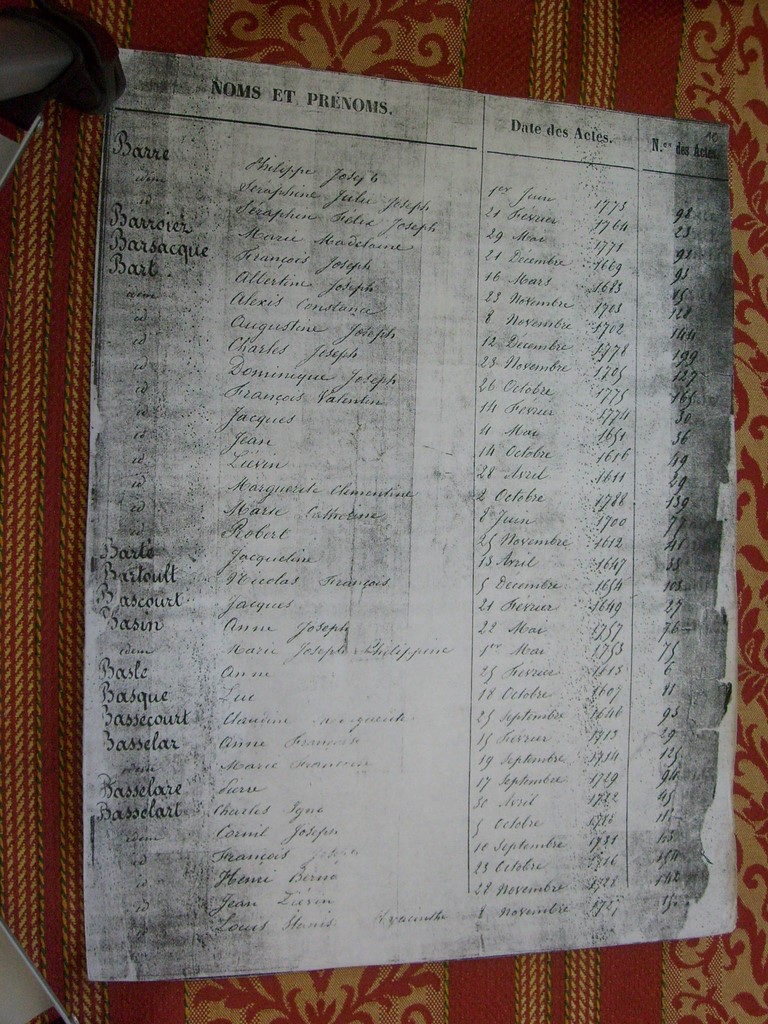 10
NOMS ET PRÉNOMS. Date des Actes. N.os des Actes.
Barre Philippe Joseph 1er Juin 1773 98
idem Séraphine Julie Joseph 21 Fevrier 1764 23
id Séraphin Félix Joseph 29 Mai 1771 92
Barroier Marie Madelaine 21 Décembre 1669 93
Barsacque François Joseph 16 Mars 1683 85
Bart Albertine Joseph 23 Novembre 1703 128
idem Alexis Constance 8 Novembre 1702 144
id Augustine Joseph 12 Decembre 1778 199
id Charles Joseph 23 Novembre 1705 127
id Dominique Joseph 26 Octobre 1775 165
id François Valentin 14 Fevrier 1774 30
id Jacques 4 Mai 1651 36
id Jean 14 Octobre 1616 49
id Liévin 28 Avril 1611 29
id Marguerite Clementine 2 Octobre 1788 139
id Marie Catherine 8 Juin 1700 77
id Robert 25 Novembre 1612 41
Barte Jacqueline 13 Avril 1647 33
Bartoult Nicolas François 5 Decembre 1654 103
Bascourt Jacques 21 Février 1649 27
Basin Anne Joseph 22 Mai 1757 76
idem Marie Joseph Philippine 1er Mai 1753 75
Basle Anne 25 Fevrier 1613 6
Basque Luc 18 Octobre 1607 81
Bassecourt Claudine 25 Septembre 1646 93
Basselar Anne François 15 Fevrier 1713 29
idem Marie 19 Septembre 1714 125
Basselare Pierre 17 Septembre 1729 94
Basselart Charles Igna 30 Avril 1722 45
idem Cornil Joseph 5 Octobre 1713
id François Joseph 10 Septembre 1731
id Henri Berna 23 Octobre 1716 154
id Jean Liévin 28 Novembre 1728 142
id Louis Stanis Hyacinthe 8 Novembre